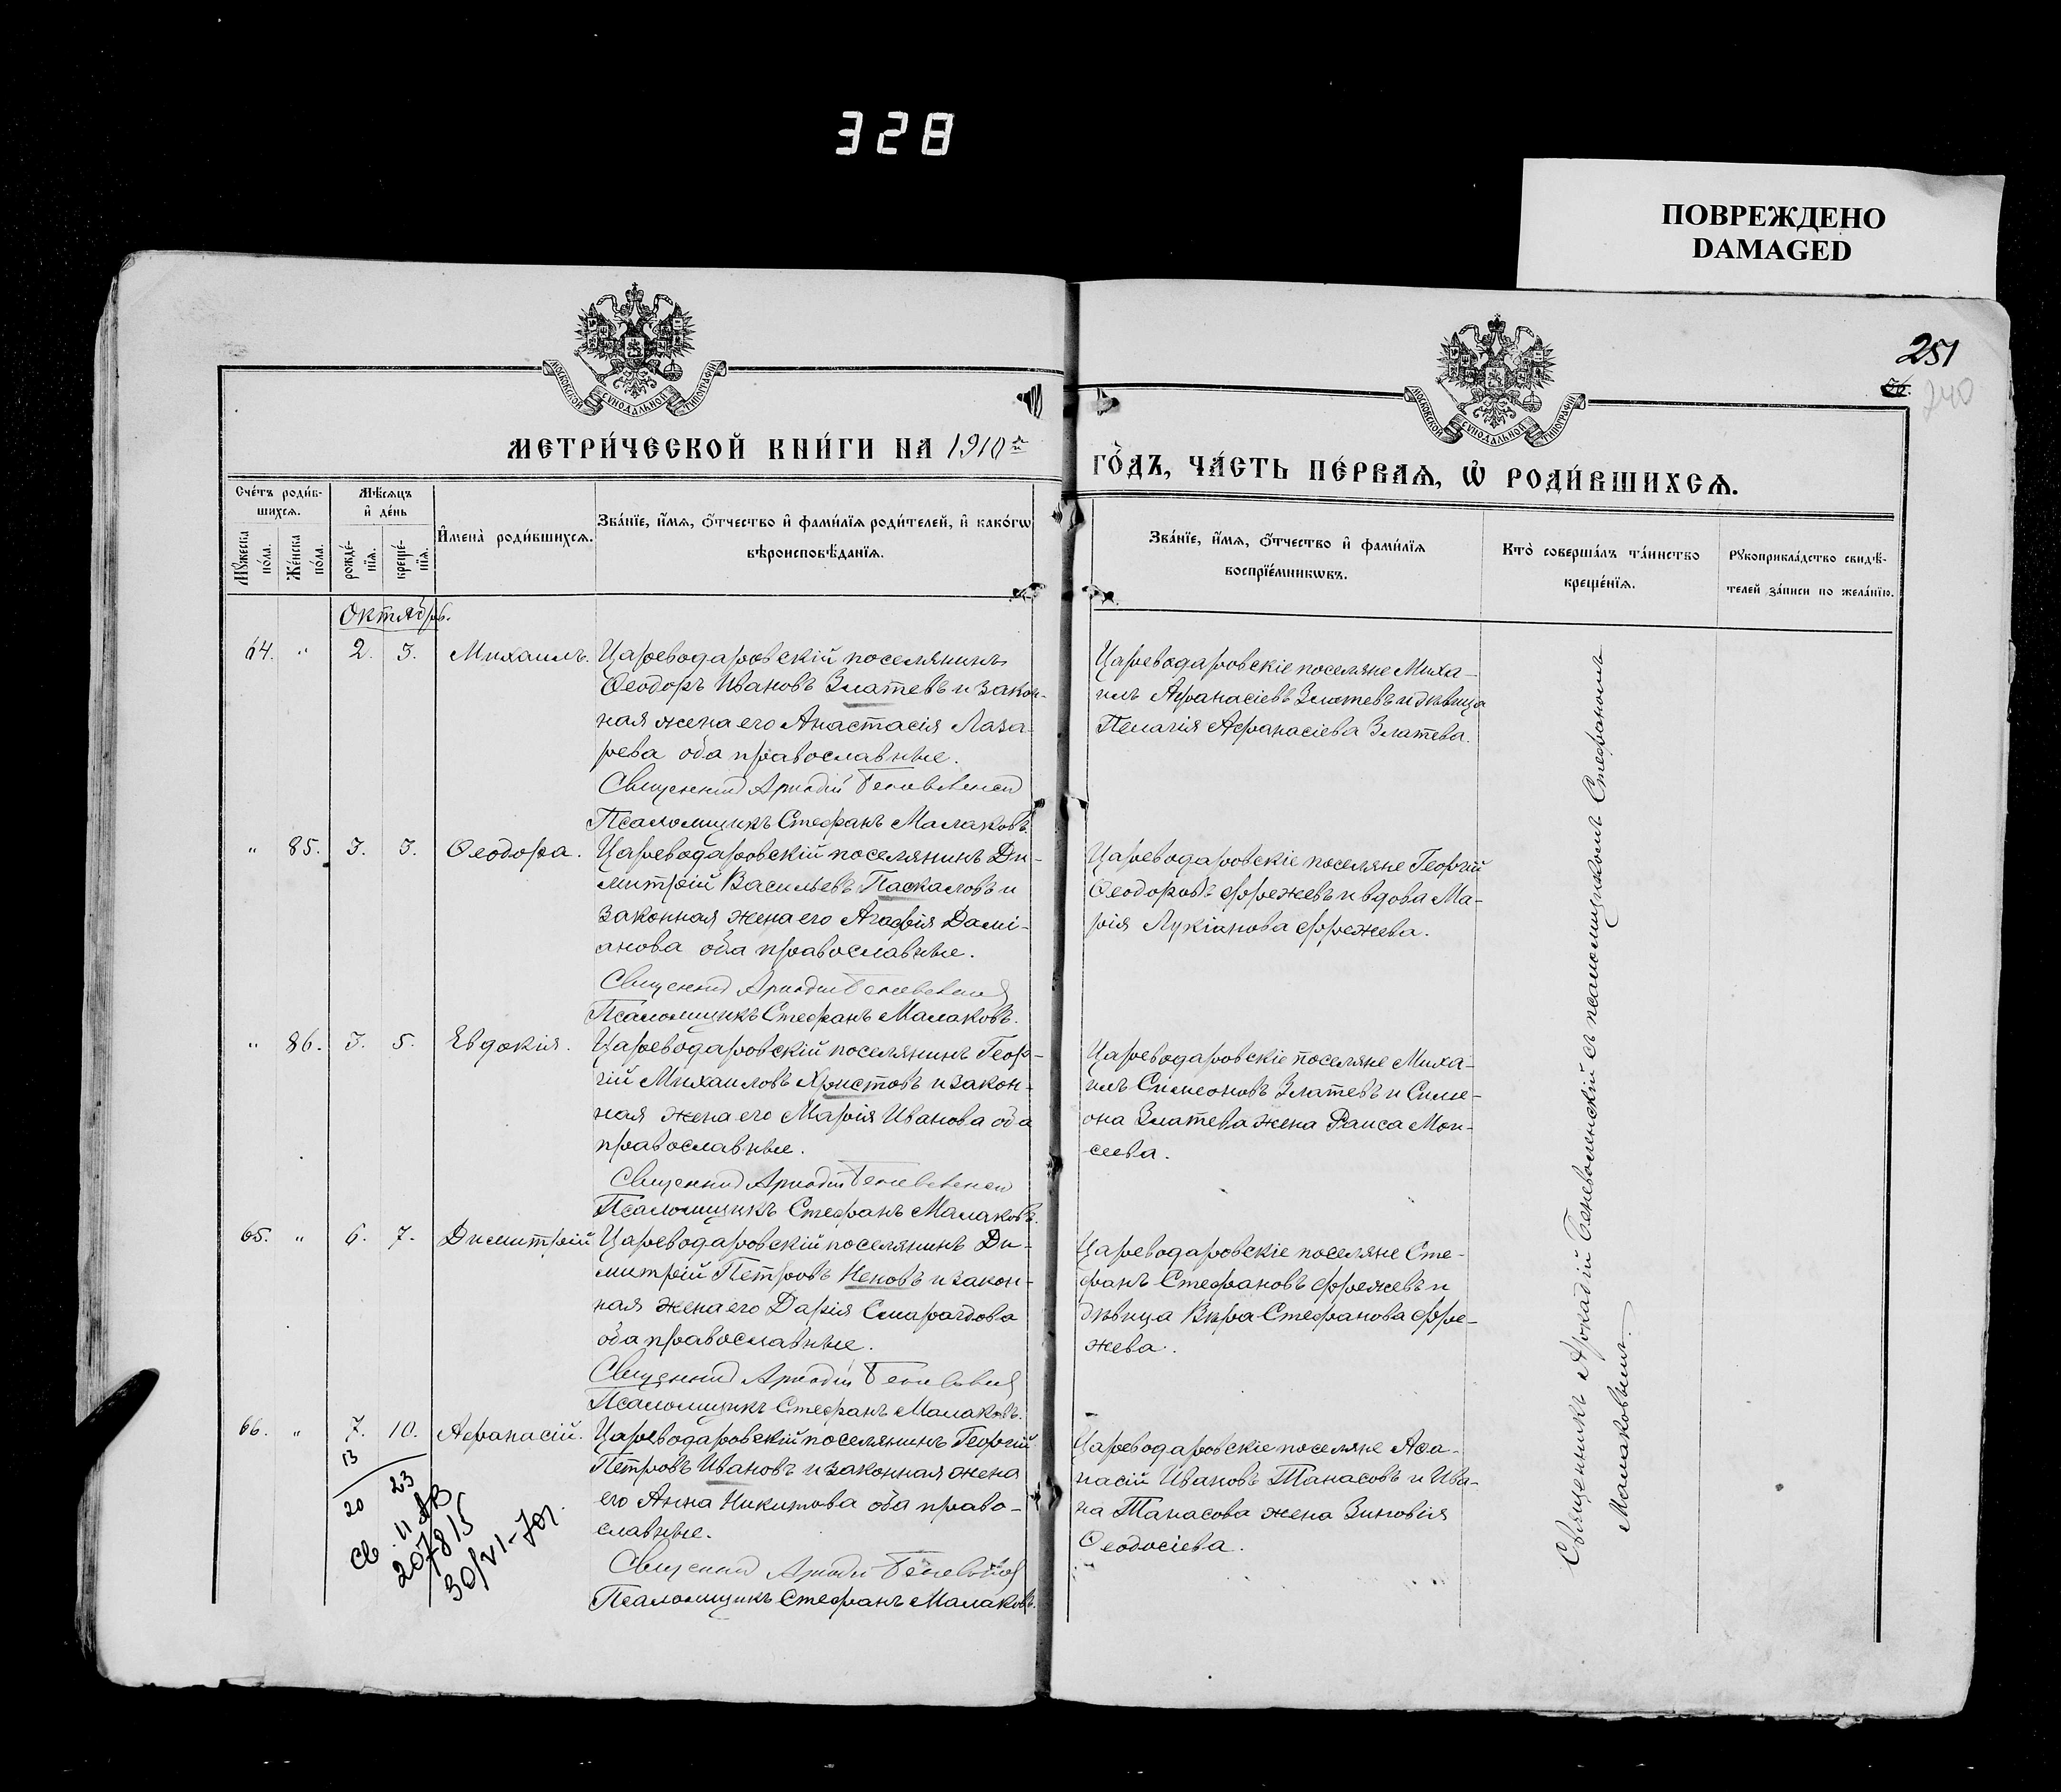 328
ПОВРЕЖДЕНО
DAMAGED
251
240
МОСКОВСКОЙ СѴНОДАЛЬНОЙ ТИПОГРАФІИ
МОСКОВСКОЙ СѴНОДАЛЬНОЙ ТИПОГРАФІИ
МЕТРИ́ЧЕСКОЙ КНИ́ГИ НА 1910й
ГО́ДЪ, ЧА́СТЬ ПЕ́РВАѦ, Ѡ҆ РОДИ́ВШИХСѦ.
Сче́тъ роди́в-
шихсѧ.
Мѣ́сѧцъ
и҆ де́нь
Мꙋ́жеска
по́ла.
Же́нска
по́ла.
рожде́-
нїѧ.
креще́-
нїѧ.
И҆мена̀ роди́вшихсѧ.
Зва́нїе, и҆́мѧ, ѻ҆́тчество и҆ фами́лїѧ роди́телей, и҆ како́гѡ
вѣроисповѣ́данїѧ.
Зва́нїе, и҆́мѧ, ѻ҆́тчество и҆ фами́лїѧ
воспрїе́мникѡвъ.
Кто̀ соверша́лъ та́инство
креще́нїѧ.
Рꙋкоприкла́дство свидѣ́-
телей за́писи по жела́нїю.
Октябрь.
64. " 2. 3. Михаилъ. Цареводаровскій поселянинъ
Ѳеодоръ Ивановъ Златевъ и закон-
ная жена его Анастасія Лаза-
рева оба православные.
Священник Аркадій Беневоленский
Псаломщикъ Стефанъ Малаковъ.
Цареводаровскіе поселяне Миха-
илъ Афанасіевъ Златевъ и дѣвица
Пелагія Афанасіева Златева.
" 85. 3. 3. Ѳеодора. Цареводаровскій поселянинъ Ди-
митрій Васильевъ Паскаловъ и
законная жена его Агафія Дамі-
анова оба православные.
Священник Аркадій Беневоленский
Псаломщикъ Стефанъ Малаковъ.
Цареводаровскіе поселяне Георгій
Ѳеодоровъ Фрежевъ и вдова Ма-
рія Лукіанова Фрежева.
" 86. 3. 5. Евдокія. Цареводаровскій поселянинъ Геор-
гій Михаиловъ Христовъ и закон-
ная жена его Марія Иванова оба
православные.
Священник Аркадій Беневоленский
Псаломщикъ Стефанъ Малаковъ.
Цареводаровскіе поселяне Миха-
илъ Симеоновъ Златевъ и Симе-
она Златева жена Раиса Мои-
сеева.
65. " 6. 7. Димитрій Цареводаровскій поселянинъ Ди-
митрій Петровъ Неновъ и закон-
ная жена его Дарія Смарагдова
оба православные.
Священник Аркадій Беневоленский
Псаломщикъ Стефанъ Малаковъ.
Цареводаровскіе поселяне Сте-
фанъ Стефановъ Фрежевъ и
дѣвица Вѣра Стефанова Фре-
жева.
66. " 7. 10. Афанасій. Цареводаровскій поселянинъ Георгій
Петровъ Ивановъ и законная жена
его Анна Никитова оба право-
славные.
Священник Аркадій Беневоленский
Псаломщикъ Стефанъ Малаковъ.
Цареводаровскіе поселяне Афа-
насій Ивановъ Танасовъ и Ива-
на Танасова жена Зиновія
Ѳеодосіева.
13
20 23
Св. II АВ
207815
30/VI-70г.
Священникъ Аркадій Беневоленскій съ псаломщикомъ Стефаномъ
Малаковымъ.